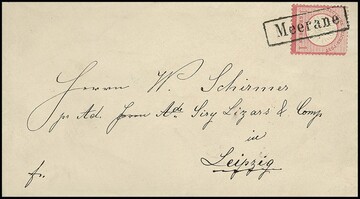 Meerane
Herrn W. Schirmer
pr. Ad. Herrn Ade Siry Lizars & Comp
in
Leipzig
fr.